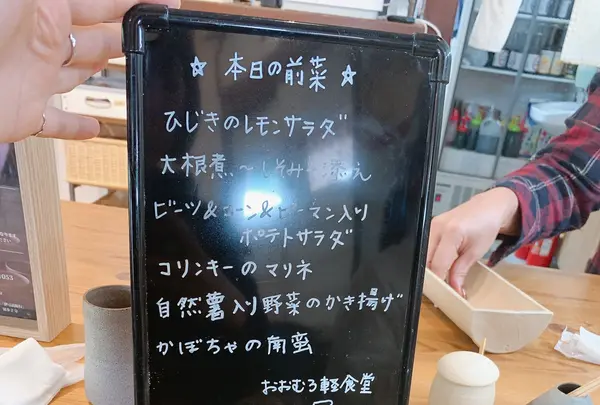 ☆ 本日の前菜 ☆
ひじきのレモンサラダ
大根煮〜しそみそ添え
ビーツ&コーン&ピーマン入り
ポテトサラダ
コリンキーのマリネ
自然薯入り野菜のかき揚げ
かぼちゃの南蛮
おおむろ軽食堂